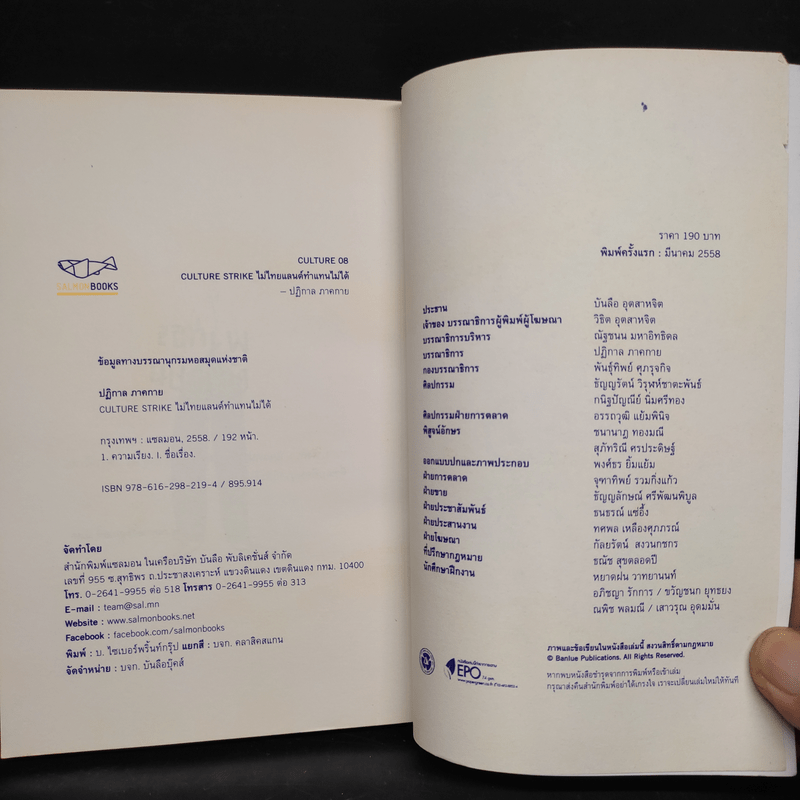 SALMONBOOKS
CULTURE 08
CULTURE STRIKE ไม่ไทยแลนด์ทำแทนไม่ได้
— ปฏิกาล ภาคกาย
ข้อมูลทางบรรณานุกรมหอสมุดแห่งชาติ
ปฏิกาล ภาคกาย
CULTURE STRIKE ไม่ไทยแลนด์ทำแทนไม่ได้
กรุงเทพฯ : แซลมอน, 2558. / 192 หน้า.
1. ความเรียง. I. ชื่อเรื่อง.
ISBN 978-616-298-219-4 / 895.914
จัดทำโดย
สำนักพิมพ์แซลมอน ในเครือบริษัท บันลือ พับลิเคชั่นส์ จำกัด
เลขที่ 955 ซ.สุทธิพร ถ.ประชาสงเคราะห์ แขวงดินแดง เขตดินแดง กทม. 10400
โทร. 0-2641-9955 ต่อ 518 โทรสาร 0-2641-9955 ต่อ 313
E-mail : team@sal.mn
Website : www.salmonbooks.net
Facebook : facebook.com/salmonbooks
พิมพ์ : บ. ไซเบอร์พริ้นท์กรุ๊ป แยกสี : บจก. คลาสิคสแกน
จัดจำหน่าย : บจก. บันลือบุ๊คส์
ราคา 190 บาท
พิมพ์ครั้งแรก : มีนาคม 2558
ประธาน บันลือ อุตสาหจิต
เจ้าของ บรรณาธิการผู้พิมพ์ผู้โฆษณา วิธิต อุตสาหจิต
บรรณาธิการบริหาร ณัฐชนน มหาอิทธิดล
บรรณาธิการ ปฏิกาล ภาคกาย
กองบรรณาธิการ พันธุ์ทิพย์ ศุภรุจกิจ
ศิลปกรรม ธัญญรัตน์ วิรุฬห์ชาตะพันธ์
กนิฐปัญณีย์ นิ่มศรีทอง
ศิลปกรรมฝ่ายการตลาด อรรถวุฒิ แย้มพินิจ
พิสูจน์อักษร ชนานาฏ ทองมณี
สุภัทริณี ศรประดิษฐ์
ออกแบบปกและภาพประกอบ พงศ์ธร ยิ้มแย้ม
ฝ่ายการตลาด จุฑาทิพย์ รวมกิ่งแก้ว
ฝ่ายขาย ธัญญลักษณ์ ศรีพัฒนพิบูล
ฝ่ายประชาสัมพันธ์ ธนธรณ์ แซ่อึ้ง
ฝ่ายประสานงาน ทศพล เหลืองศุภภรณ์
ฝ่ายโฆษณา กัลยรัตน์ สงวนกชกร
ที่ปรึกษากฎหมาย ธณัช สุขตลอดปี
นักศึกษาฝึกงาน หยาดฝน วาทยานนท์
อภิชญา รักการ / ขวัญชนก ยุทธยง
ณพิช พลมณี / เสาวรุณ อุดมมั่น
ภาพและข้อเขียนในหนังสือเล่มนี้ สงวนสิทธิ์ตามกฎหมาย
© Banlue Publications. All Rights Reserved.
EPO
หากพบหนังสือชำรุดจากการพิมพ์หรือเข้าเล่ม
กรุณาส่งคืนสำนักพิมพ์อย่าได้เกรงใจ เราจะเปลี่ยนเล่มใหม่ให้ทันที